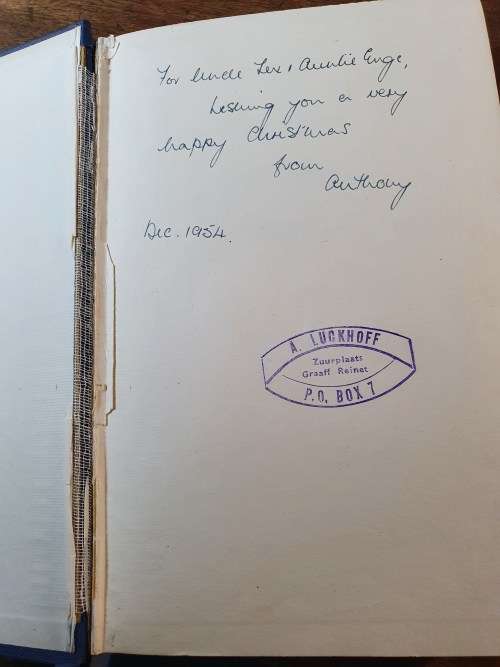 For Uncle Lex & Auntie Enge,
Wishing you a very
happy Christmas
from
Anthony
Dec. 1954.
A. LUCKHOFF
Zuurplaats
Graaff Reinet
P.O. BOX 7